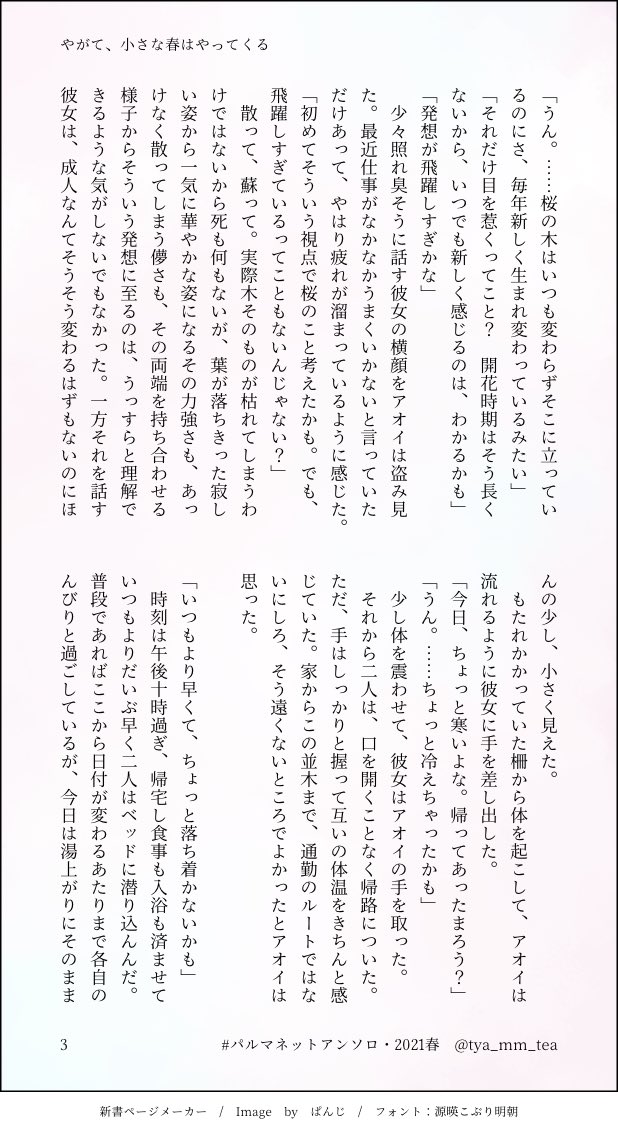 やがて、小さな春はやってくる
「うん。……桜の木はいつも変わらずそこに立ってい
るのにさ、毎年新しく生まれ変わっているみたい」
「それだけ目を惹くってこと？　開花時期はそう長く
ないから、いつでも新しく感じるのは、わかるかも」
「発想が飛躍しすぎかな」
　少々照れ臭そうに話す彼女の横顔をアオイは盗み見
た。最近仕事がなかなかうまくいかないと言っていた
だけあって、やはり疲れが溜まっているように感じた。
「初めてそういう視点で桜のこと考えたかも。でも、
飛躍しすぎているってこともないんじゃない？」
　散って、蘇って。実際木そのものが枯れてしまうわ
けではないから死も何もないが、葉が落ちきった寂し
い姿から一気に華やかな姿になるその力強さも、あっ
けなく散ってしまう儚さも、その両端を持ち合わせる
様子からそういう発想に至るのは、うっすらと理解で
きるような気がしないでもなかった。一方それを話す
彼女は、成人なんてそうそう変わるはずもないのにほ
んの少し、小さく見えた。
　もたれかかっていた柵から体を起こして、アオイは
流れるように彼女に手を差し出した。
「今日、ちょっと寒いよな。帰ってあったまろう？」
「うん。……ちょっと冷えちゃったかも」
　少し体を震わせて、彼女はアオイの手を取った。
　それから二人は、口を開くことなく帰路についた。
ただ、手はしっかりと握って互いの体温をきちんと感
じていた。家からこの並木まで、通勤のルートではな
いにしろ、そう遠くないところでよかったとアオイは
思った。
「いつもより早くて、ちょっと落ち着かないかも」
　時刻は午後十時過ぎ、帰宅し食事も入浴も済ませて
いつもよりだいぶ早く二人はベッドに潜り込んんだ。
普段であればここから日付が変わるあたりまで各自の
んびりと過ごしているが、今日は湯上がりにそのまま
3
#パルマネットアンソロ・2021春　@tya_mm_tea
新書ページメーカー　/　Image　by　ぱんじ　/　フォント：源暎こぶり明朝